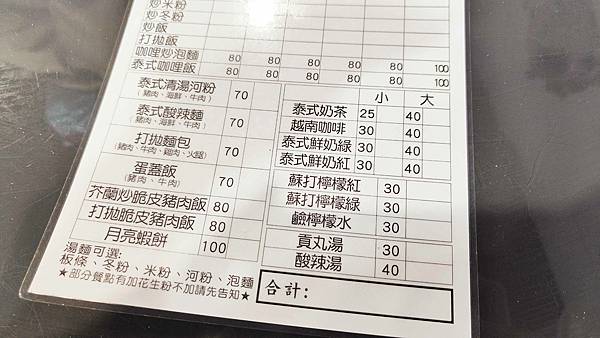 炒米粉
炒冬粉
炒飯
打拋飯
咖哩炒泡麵 80 80 80 80 100
泰式咖哩飯 80 80 80 80 80 100
泰式清湯河粉 70
(豬肉、海鮮、牛肉)
泰式酸辣麵 70
(豬肉、海鮮、牛肉)
打拋麵包 70
(豬肉、牛肉、雞肉、火腿)
蛋蓋飯 70
(豬肉、牛肉)
芥蘭炒脆皮豬肉飯 80
打拋脆皮豬肉飯 80
月亮蝦餅 100
湯麵可選:
板條、冬粉、米粉、河粉、泡麵
★部分餐點有加花生粉不加請先告知★
小 大
泰式奶茶 25 40
越南咖啡 30 40
泰式鮮奶綠 30 40
泰式鮮奶紅 30 40
蘇打檸檬紅 30
蘇打檸檬綠 30
鹼檸檬水 30
貢丸湯 30
酸辣湯 40
合計: